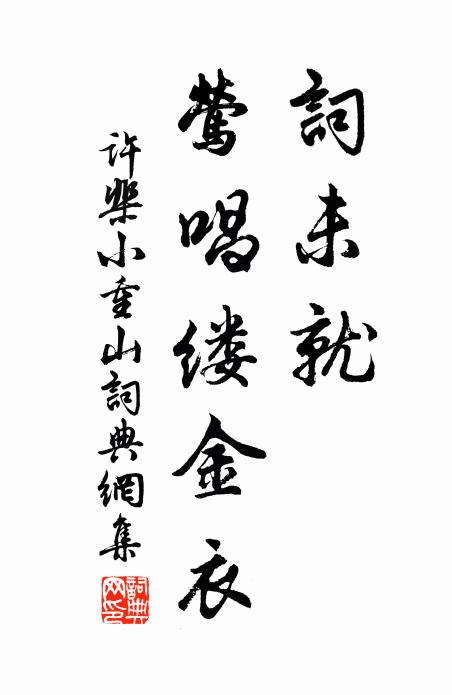 詞未就
鶯唱缕金衣
许棐小重山詞典網集
詞典网印